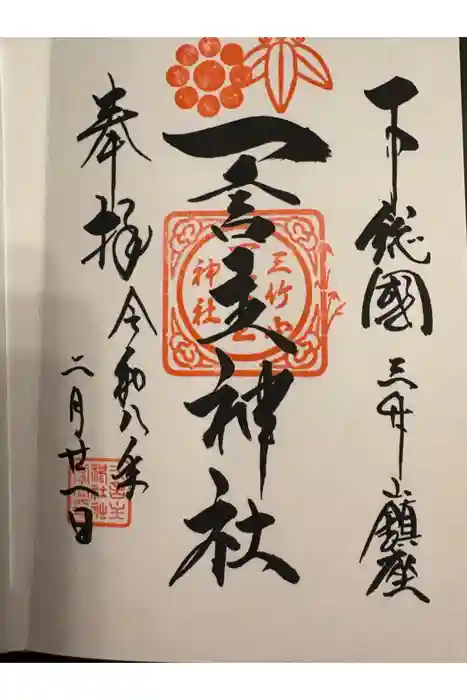 下総國 三竹山鎮座
一言主神社
三竹山
神社
奉拝 令和八年
二月廿日